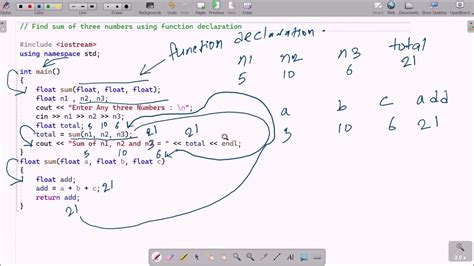 // Find sum of three numbers using function declaration
function declaration.
#include <iostream>
using namespace std;
n1 n2 n3 total
5 10 6 21
int main()
{
float sum(float, float, float);
float n1 , n2, n3;
cout << "Enter Any three Numbers : \n";
cin >> n1 >> n2 >> n3;
a b c add
float total; 5 10 6
21 21
total = sum(n1, n2, n3);
5 10 6 21
cout << "Sum of n1, n2 and n3 = " << total << endl;
} 5 10 6
float sum(float a, float b, float c)
{
float add;
add = a + b + c; 21
return add;
} 21